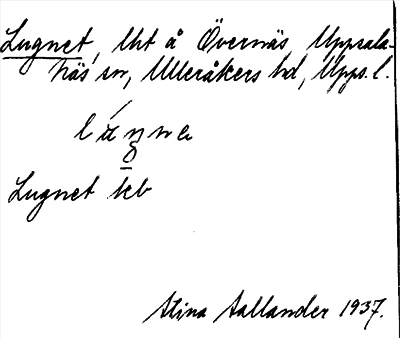 Lugnet, lht å Övernäs, Uppsala-
Näs sn, Ulleråkers hd, Upps. l.
Lugnet teb
Stina Sallander 1937.